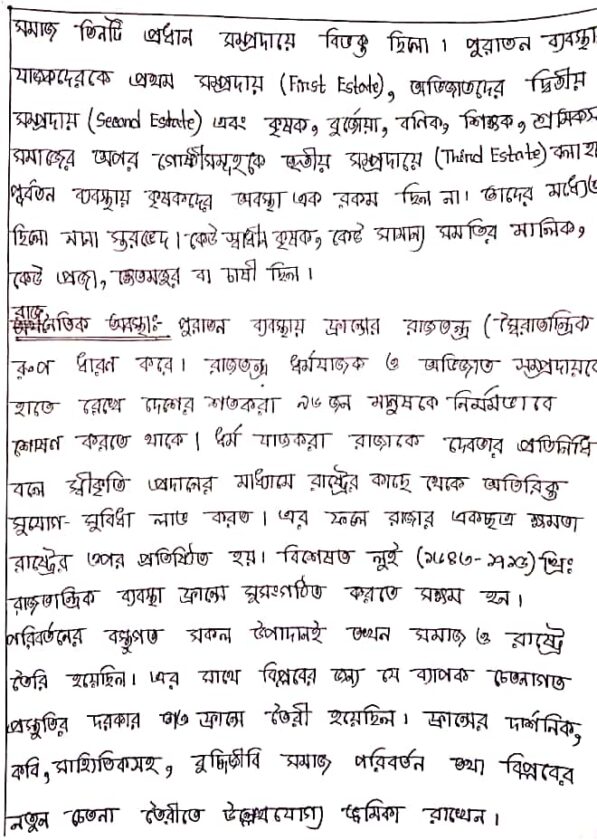 সমাজ তিনটি প্রধান সম্প্রদায়ে বিভক্ত ছিলো। পুরাতন ব্যবস্থা
যাজকদেরকে প্রথম সম্প্রদায় (First Estate), অভিজাতদের দ্বিতীয়
সম্প্রদায় (Second Estate) এবং কৃষক, বুর্জোয়া, বনিক, শিক্ষক, শ্রমিকস
সমাজের অপর গোষ্ঠীসমূহকে তৃতীয় সম্প্রদায়ে (Third Estate) বলা হ
পূর্বতন ব্যবস্থায় কৃষকদের অবস্থা এক রকম ছিল না। তাদের মধ্যেও
ছিলো নানা স্তরভেদ। কেউ স্বাধীন কৃষক, কেউ সামান্য সমতির মালিক,
কেউ প্রজা, ক্ষেতমজুর বা চাষী ছিল।
রাজনৈতিক অবস্থাঃ পুরাতন ব্যবস্থায় ফ্রান্সের রাজতন্ত্র (স্বৈরাতান্ত্রিক
রূপ ধারণ করে। রাজতন্ত্র ধর্মযাজক ও অভিজাত সম্প্রদায়কে
হাতে রেখে দেশের শতকরা ৯৬ জন মানুষকে নির্মমভাবে
শোষণ করতে থাকে। ধর্ম যাজকরা রাজাকে দেবতার প্রতিনিধি
বলে স্বীকৃতি প্রদানের মাধ্যমে রাষ্ট্রের কাছে থেকে অতিরিক্ত
সুযোগ-সুবিধা লাভ করত। এর ফলে রাজার একচ্ছত্র ক্ষমতা
রাষ্ট্রের ওপর প্রতিষ্ঠিত হয়। বিশেষত লুই (১৬৪৩-১৭১৫) খ্রিঃ
রাজতান্ত্রিক ব্যবস্থা ফ্রান্সে সুসংগঠিত করতে সক্ষম হন।
পরিবর্তনের বস্তুগত সকল উপাদানই তখন সমাজ ও রাষ্ট্রে
তৈরি হয়েছিল। এর সাথে বিপ্লবের জন্য যে ব্যাপক চেতনাগত
প্রস্তুতির দরকার তাও ফ্রান্সে তৈরী হয়েছিল। ফ্রান্সের দার্শনিক,
কবি, সাহিত্যিকসহ, বুদ্ধিজীবি সমাজ পরিবর্তন তথা বিপ্লবের
নতুন চেতনা তৈরীতে উল্লেখযোগ্য ভূমিকা রাখেন।